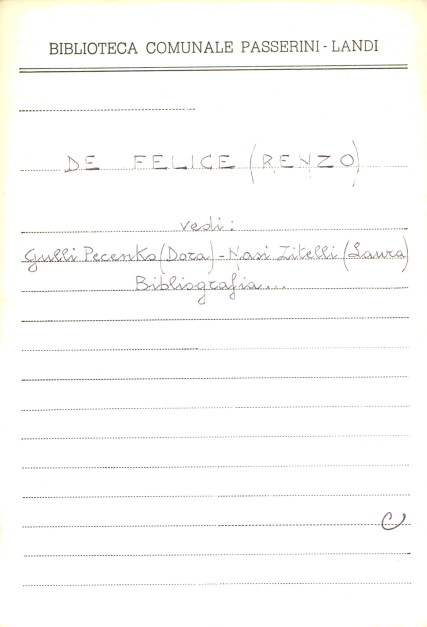 BIBLIOTECA COMUNALE PASSERINI - LANDI
DE FELICE (RENZO)
vedi:
Gulli Pecenko (Dora) - Nasi Zitelli (Laura)
Bibliografia...
C